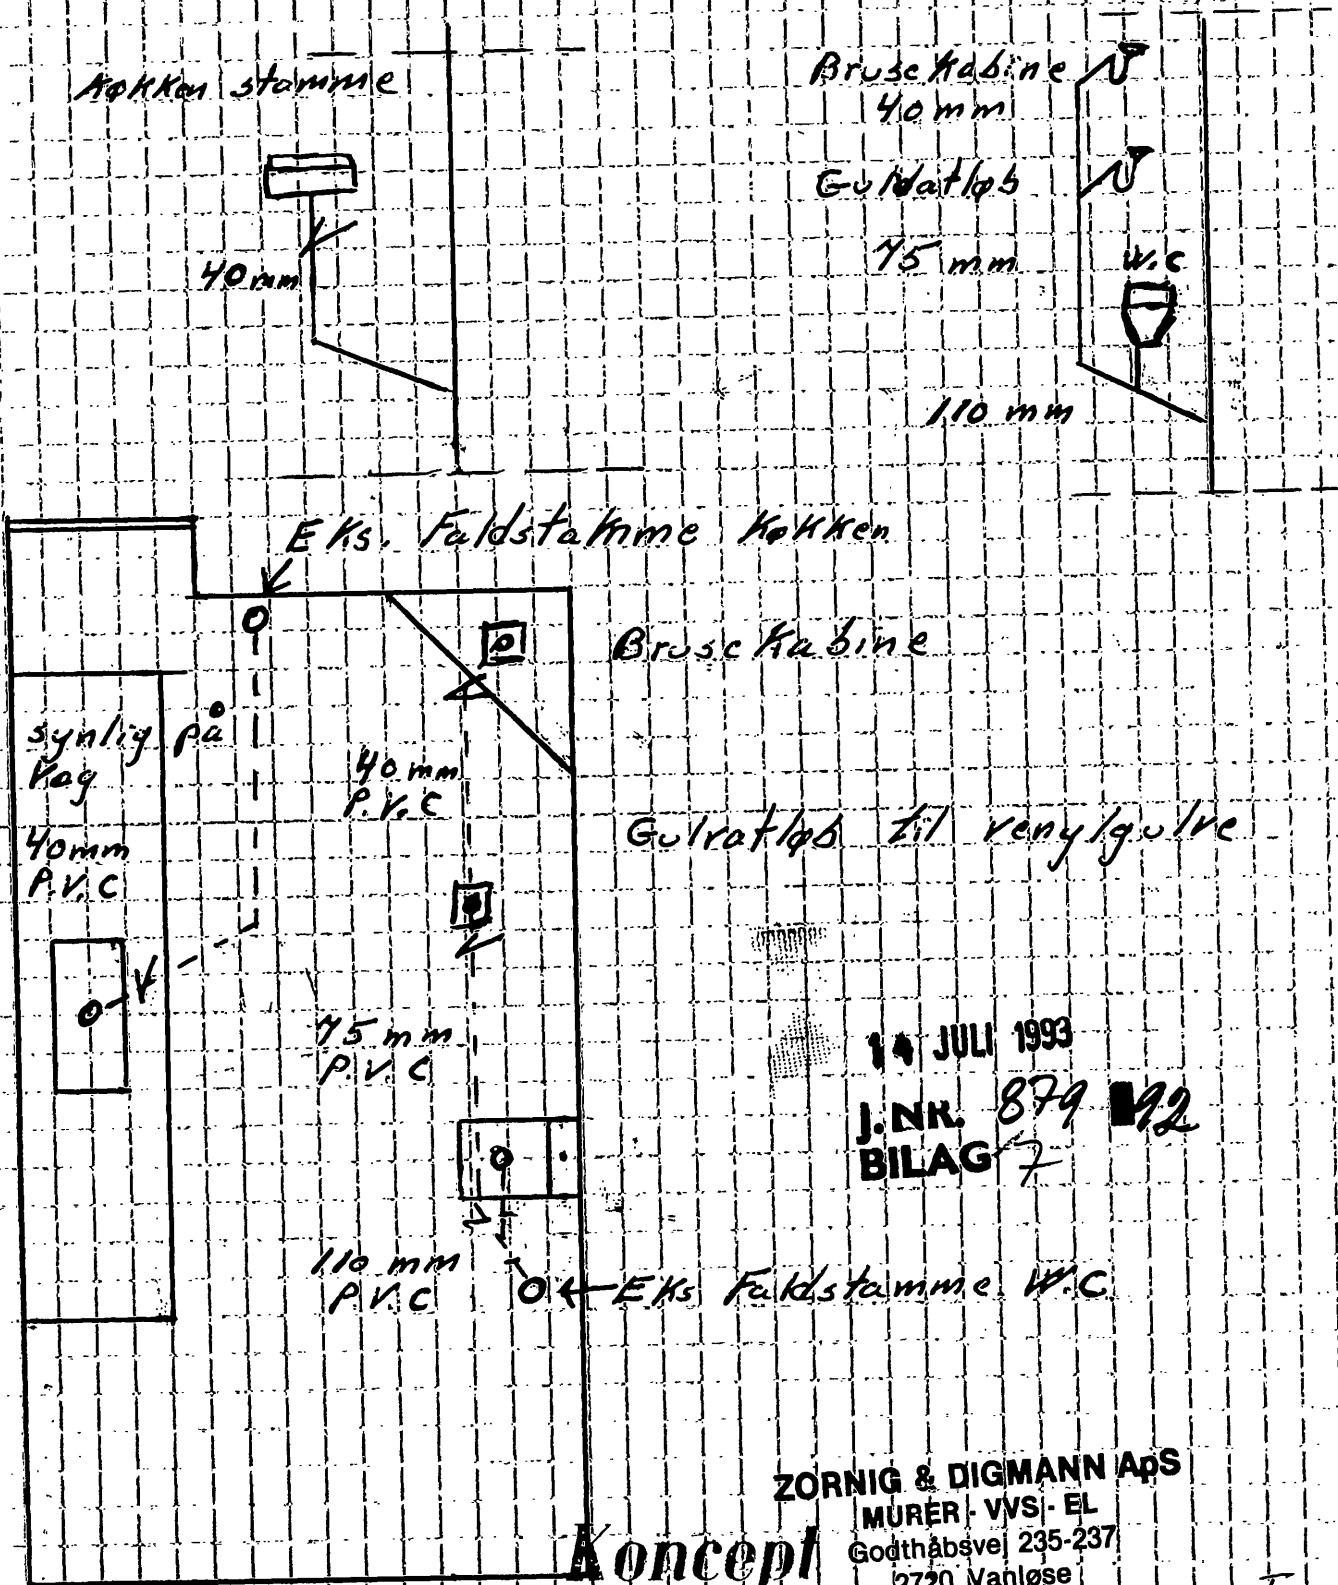 Køkken stamme
40 mm
Bruse Kabine
40 mm
Gulvatløb
75 mm
W.C
110 mm
Eks. Faldstamme Køkken
Bruse Kabine
synlig på
Væg
40 mm
P.V.C
40 mm
P.V.C
Gulvatløb til venylgulve
75 mm
P.V.C
14 JULI 1993
J. NR. 879 92
BILAG 7
110 mm
P.V.C
Eks Faldstamme W.C
ZORNIG & DIGMANN ApS
MURER - VVS - EL
Godthåbsvej 235-237
2720 Vanløse
Koncept